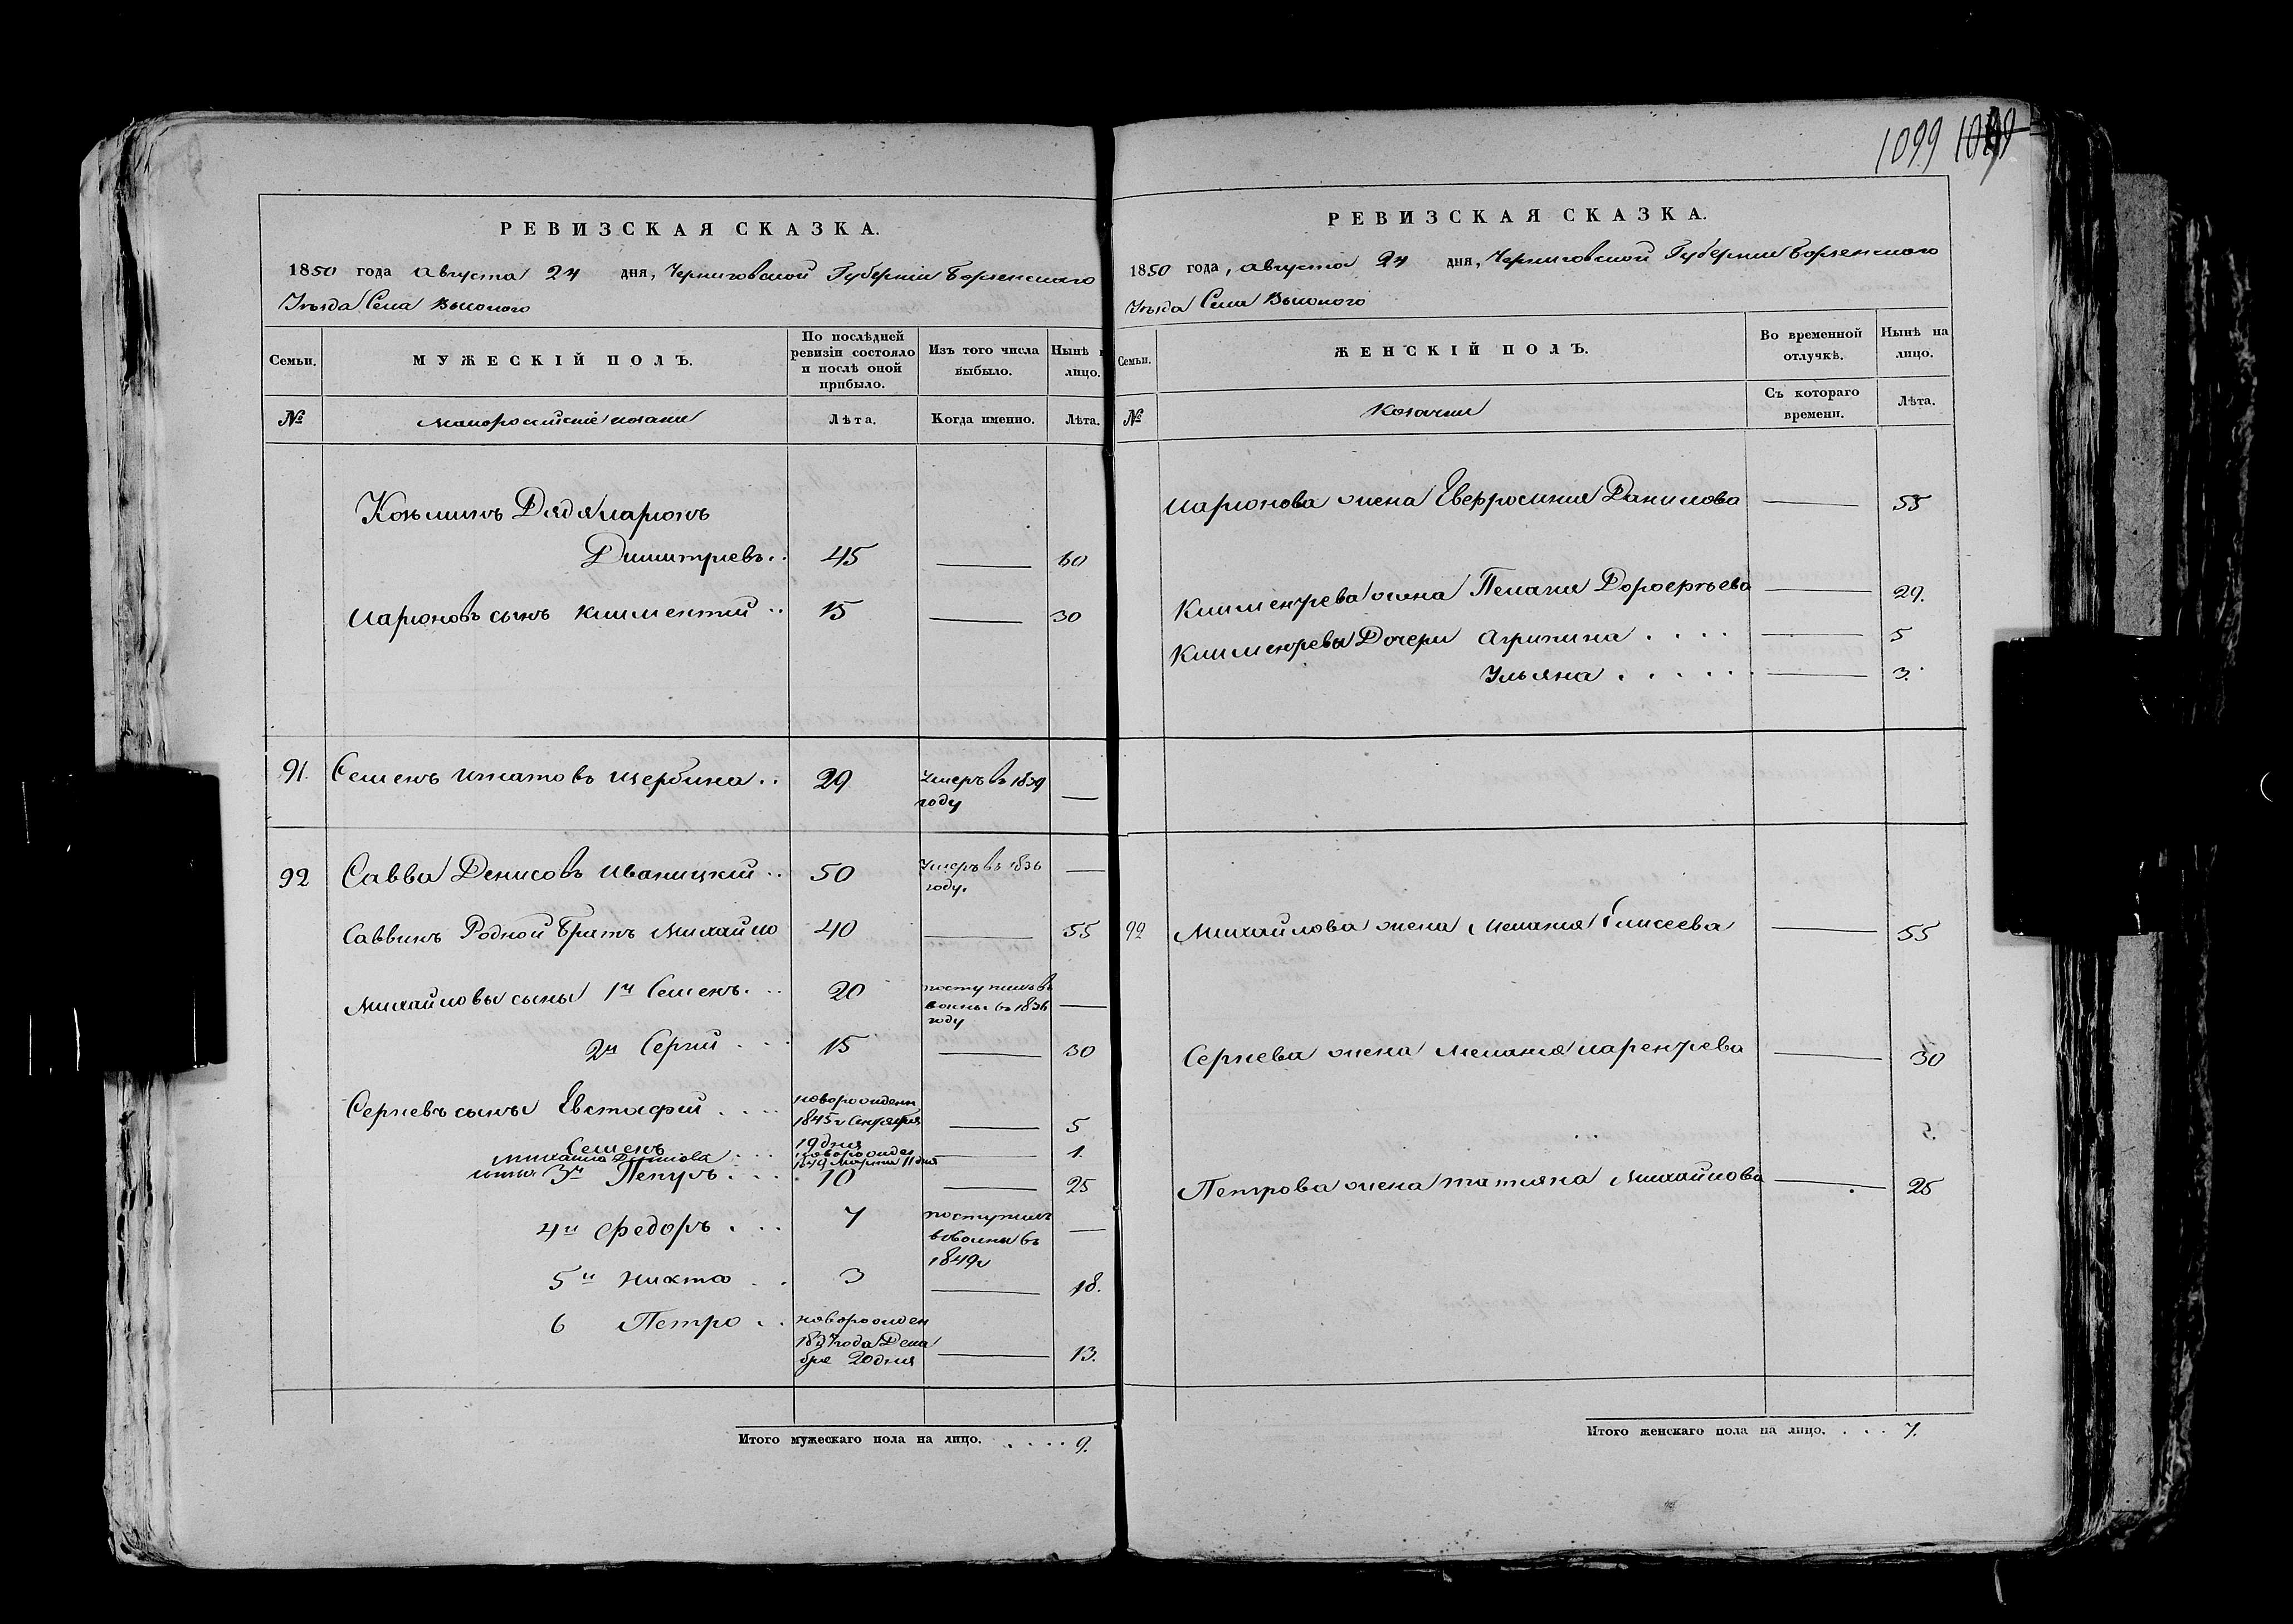 1099 1099
РЕВИЗСКАЯ СКАЗКА.
1850 года Августа 24 дня, Черниговской Губернии Борзенского
Уѣзда Села Высокого
Семьи.
МУЖЕСКІЙ ПОЛЪ.
По послѣдней ревизіи состояло и послѣ оной прибыло.
Изъ того числа выбыло.
Нынѣ
лицо.
№
Малороссийскіе козаки
Лѣта.
Когда именно.
Лѣта.
Козьминъ Дядя Иарионъ
Димитриевъ .. 45 — 60
Иарионовъ сынъ Климентий .. 15 — 30
91. Семенъ Игнатовъ Щербина .. 29 Умеръ въ 1839 году —
92 Савва Денисовъ Иваницкий .. 50 Умеръ въ 1836 году. —
Саввинъ Родной Братъ Михайло 40 — 55
Михайловы сыны 1й Семенъ ... 20 поступилъ въ воины въ 1836 году —
2й Сергий ... 15 — 30
Сергиевъ сыны Евстафий .... новорожденн 1845г Сентября 19 дня — 5
Семенъ ... новорожден 1849 Марта 11 дня — 1.
Михайла Денисова
сыны 3й Петръ ... 10 — 25
4й Федоръ ... 7 поступилъ в воины въ 1849г —
5й Никита .. 3 — 18.
6 Петро .. новорожден 1837 года Дека бре 20 дня — 13.
Итого мужескаго пола на лицо. .... 9.
РЕВИЗСКАЯ СКАЗКА.
1850 года, Августа 24 дня, Черниговской Губернии Борзенского
Уѣзда Села Высокого
Семьи.
ЖЕНСКІЙ ПОЛЪ.
Во временной отлучкѣ.
Нынѣ на лицо.
№
Козачки
Съ котораго времени.
Лѣта.
Иарионова жена Евфросиния Данилова — 55
Климентиева жена Пелагия Дорофеева — 29.
Климентиевы Дочери Агрипина .... — 5
Ульяна ..... — 3.
92 Михайлова жена Мелания Елисеева — 55
Сергиева жена Мелания Ларентиева — 30
Петрова жена Татияна Михайлова — 25
Итого женскаго пола на лицо. ... 7.